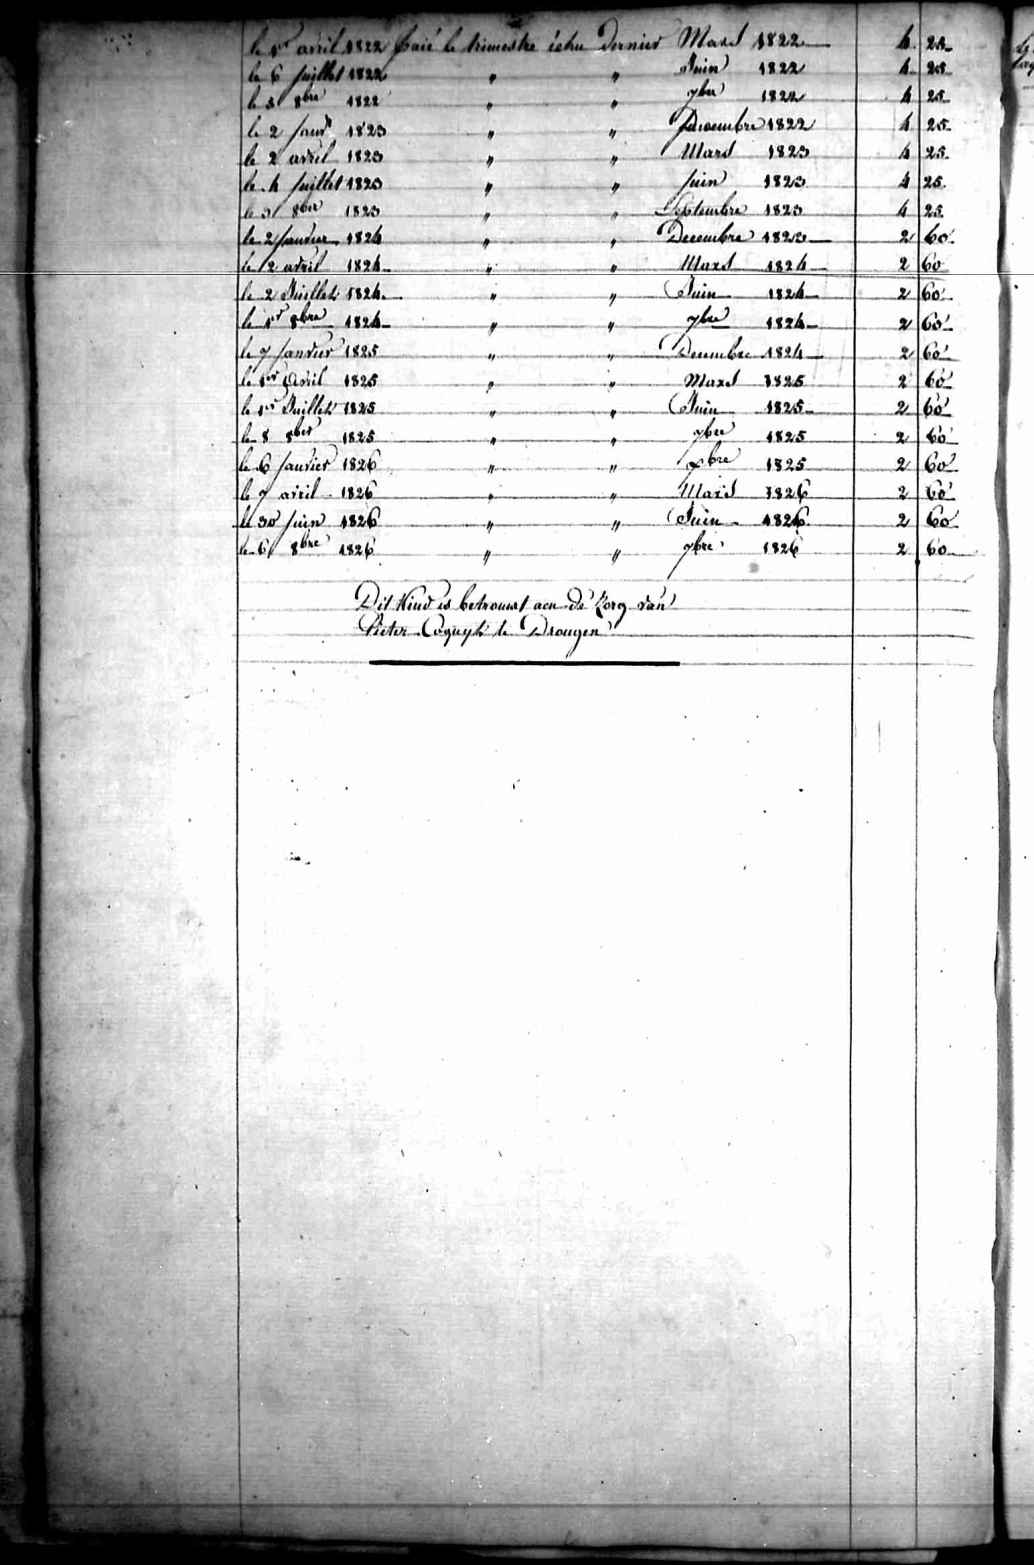 le 1er avril 1822 paié le trimestre échu Dernier Mars 1822 4. 25
le 6 Juillet 1822 " " Juin 1822 4. 25
le 3 8bre 1822 " " 7bre 1822 4 25
le 2 Janvr 1823 " " Decembre 1822 4 25
le 2 avril 1823 " " Mars 1823 4 25
le 4 Juillet 1823 " " Juin 1823 4 25
le 3 8bre 1823 " " Septembre 1823 4 25
le 2 Janvier 1824 " " Decembre 1823 2 60
le 2 avril 1824 " " Mars 1824 2 60
le 2 Juillet 1824 " " Juin 1824 2 60
le 1er 8bre 1824 " " 7bre 1824 2 60
le 7 Janvier 1825 " " Decembre 1824 2 60
le 1er Avril 1825 " " Mars 1825 2 60
le 1er Juillet 1825 " " Juin 1825 2 60
le 8 8bre 1825 " " 7bre 1825 2 60
le 6 Janvier 1826 " " xbre 1825 2 60
le 7 avril 1826 " " Mars 1826 2 60
le 30 Juin 1826 " " Juin 1826 2 60
le 6 8bre 1826 " " 7bre 1826 2 60
Dit Kind is betrouwt aen de Zorg van
Pieter Coguyt te Drongen